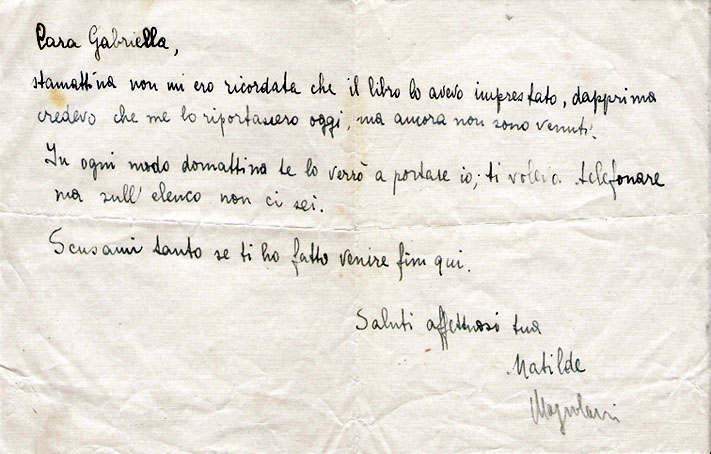 Cara Gabriella,
stamattina non mi ero ricordata che il libro lo avevo imprestato, dapprima
credevo che me lo riportassero oggi, ma ancora non sono venuti.
In ogni modo domattina te lo verrò a portare io; ti volevo telefonare
ma sull' elenco non ci sei.
Scusami tanto se ti ho fatto venire fin qui.
Saluti affettuosi tua
Matilde